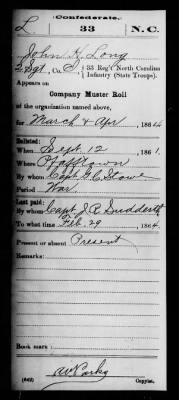 Confederate.
L. 33 N.C.
John H. Long
Sergt, Co. C, 33 Reg't North Carolina
Infantry (State Troops).
Appears on
Company Muster Roll
of the organization named above,
for March & Apr, 1864
Enlisted:
When Sept. 12, 1861.
Where
By whom Capt. G. C. Stowe
Period War.
Last paid:
By whom Capt. J. R. Sudderth
To what time Feb. 29, 1864.
Present or absent Present
Remarks:
Book mark:
(642) Copyist.